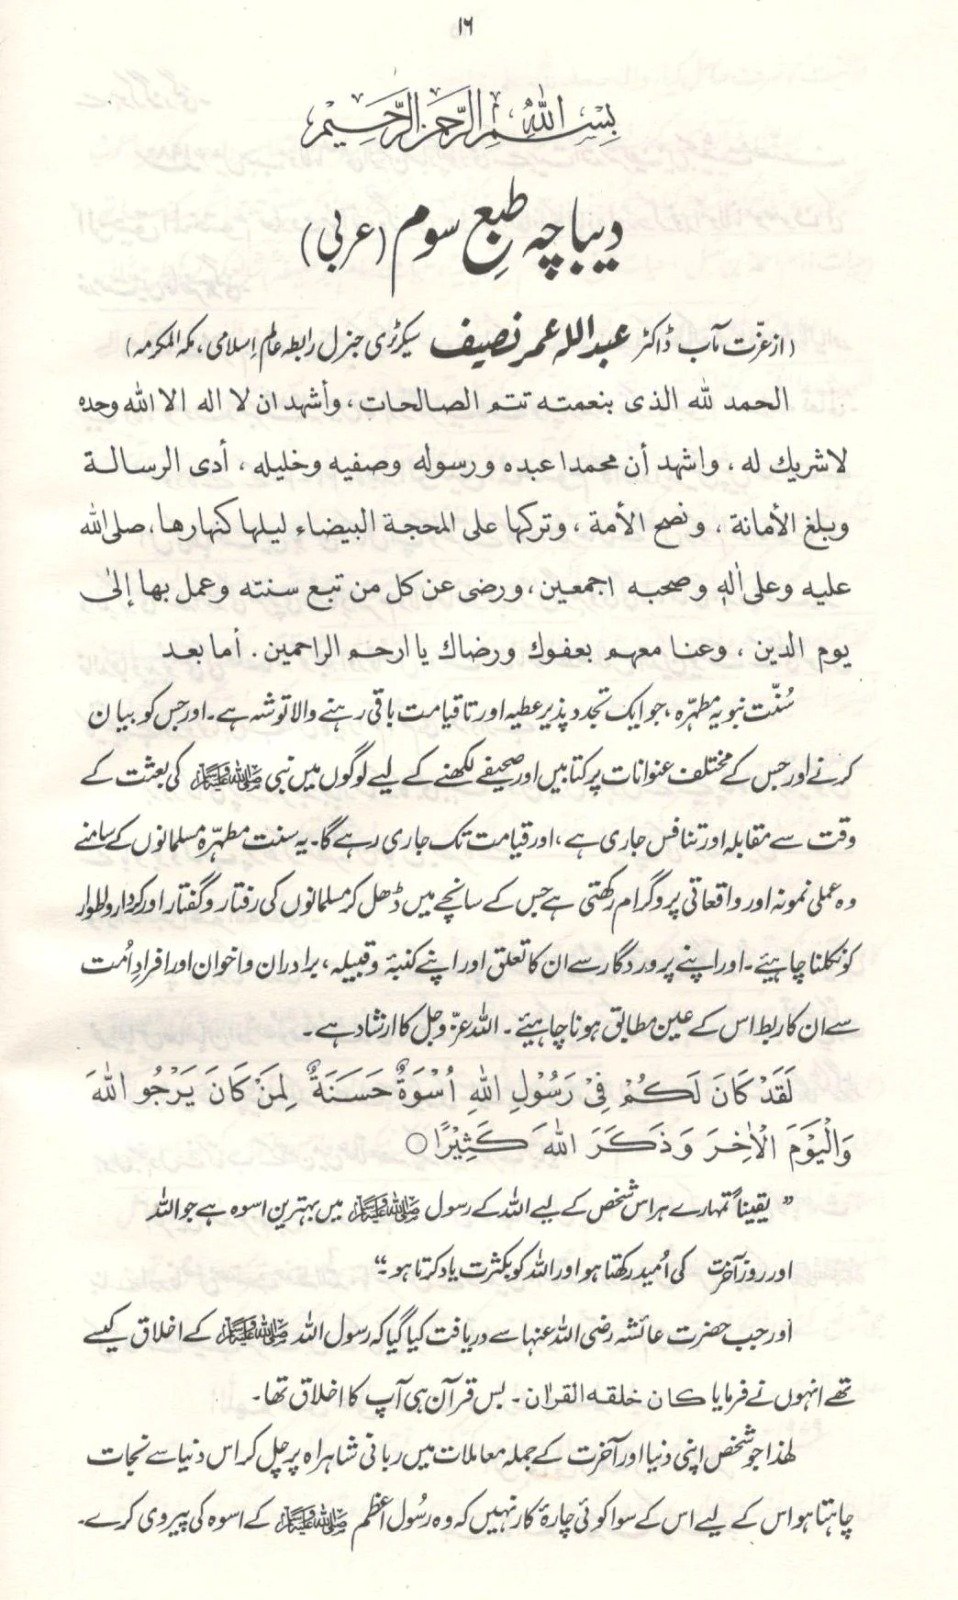 ۱۶
بِسْمِ اللهِ الرَّحْمٰنِ الرَّحِيْمِ
دیباچہ طبعِ سوم (عربی)
(از عزّت مآب ڈاکٹر عبداللہ عمر نصیف سیکرٹری جنرل رابطہ عالم اِسلامی، مکۃ المکرمہ)
الحمد لله الذى بنعمته تتم الصالحات، وأشهد ان لا اله الا الله وحده
لاشريك له، واشهد أن محمدا عبده ورسوله وصفيه وخليله، أدى الرسالة
وبلغ الأمانة، ونصح الأمة، وتركها على المحجة البيضاء ليلها كنهارها، صلى الله
عليه وعلى اٰلهٖ وصحبه اجمعين، ورضى عن كل من تبع سنته وعمل بها إلىٰ
يوم الدين، وعنا معهم بعفوك ورضاك يا ارحم الراحمين. أما بعد
سُنّت نبویہ مطہّرہ، جو ایک تجدد پذیر عطیہ اور تا قیامت باقی رہنے والا توشہ ہے۔ اور جس کو بیان
کرنے اور جس کے مختلف عنوانات پر کتابیں اور صحیفے لکھنے کے لیے لوگوں میں نبی ﷺ کی بعثت کے
وقت سے مقابلہ اور تنافس جاری ہے، اور قیامت تک جاری رہے گا۔ یہ سنت مطہّرہ مسلمانوں کے سامنے
وہ عملی نمونہ اور واقعاتی پروگرام رکھتی ہے جس کے سانچے میں ڈھل کر مسلمانوں کی رفتار و گفتار اور کردار و اطوار
کو نکلنا چاہیئے۔ اور اپنے پروردگار سے ان کا تعلق اور اپنے کنبۂ و قبیلہ، برادران و اخوان اور افرادِ اُمت
سے ان کا ربط اس کے عین مطابق ہونا چاہیئے۔ اللہ عزّوجل کا ارشاد ہے۔
لَقَدْ كَانَ لَكُمْ فِىْ رَسُوْلِ اللهِ اُسْوَةٌ حَسَنَةٌ لِمَنْ كَانَ يَرْجُو اللهَ
وَالْيَوْمَ الْاٰخِرَ وَذَكَرَ اللهَ كَثِيْرًا ○
”یقیناً تمہارے ہر اس شخص کے لیے اللہ کے رسول ﷺ میں بہترین اسوہ ہے جو اللہ
اور روزِ آخرت کی اُمید رکھتا ہو اور اللہ کو بکثرت یاد کرتا ہو۔“
اور جب حضرت عائشہ رضی اللہ عنہا سے دریافت کیا گیا کہ رسول اللہ ﷺ کے اخلاق کیسے
تھے انہوں نے فرمایا كان خلقه القراٰن۔ بس قرآن ہی آپ کا اخلاق تھا۔
لہٰذا جو شخص اپنی دنیا اور آخرت کے جملہ معاملات میں ربانی شاہراہ پر چل کر اس دنیا سے نجات
چاہتا ہو اس کے لیے اس کے سوا کوئی چارۂ کار نہیں کہ وہ رسُولِ اعظم ﷺ کے اسوہ کی پیروی کرے۔